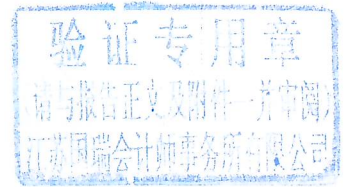 验证专用章
请与报告正文及附件一并审阅
江苏国瑞会计师事务所有限公司